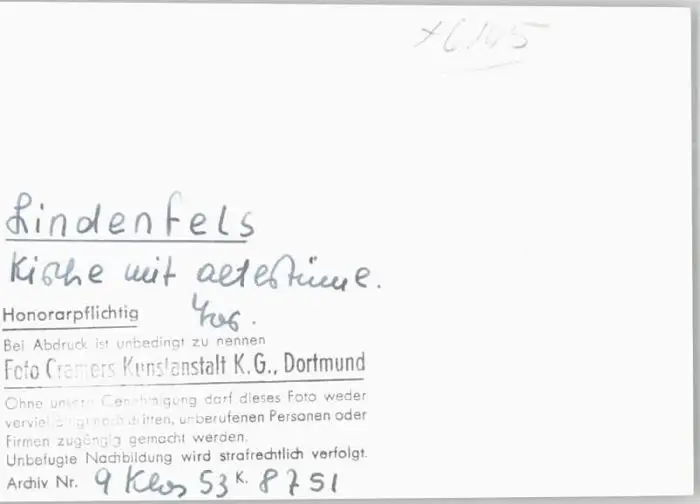 Lindenfels
Kirche mit
Honorarpflichtig
Bei Abdruck ist unbedingt zu nennen
Foto Cramers Kunstanstalt K.G., Dortmund
Ohne unsere Genehmigung darf dieses Foto weder
vervielfältigt noch dritten, unberufenen Personen oder
Firmen zugängig gemacht werden.
Unbefugte Nachbildung wird strafrechtlich verfolgt.
Archiv Nr. 9 Klos 53 K. 8751